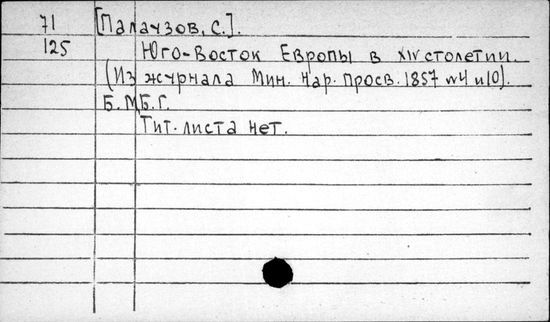 71 [Палаузов, С.].
125 Юго-Восток Европы в XIV столетии.
(Из журнала Мин. Нар. Просв. 1857 №4 и 10).
Б.М.Б.Г.
Тит. листа нет.